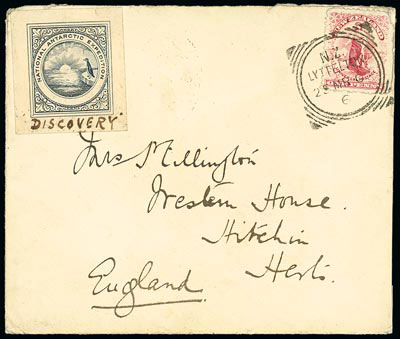 NATIONAL ANTARCTIC EXPEDITION
DISCOVERY
N.Z.
LYTTELTON
6
Mrs Millington
Western House.
Hitchin
Herts.
England.